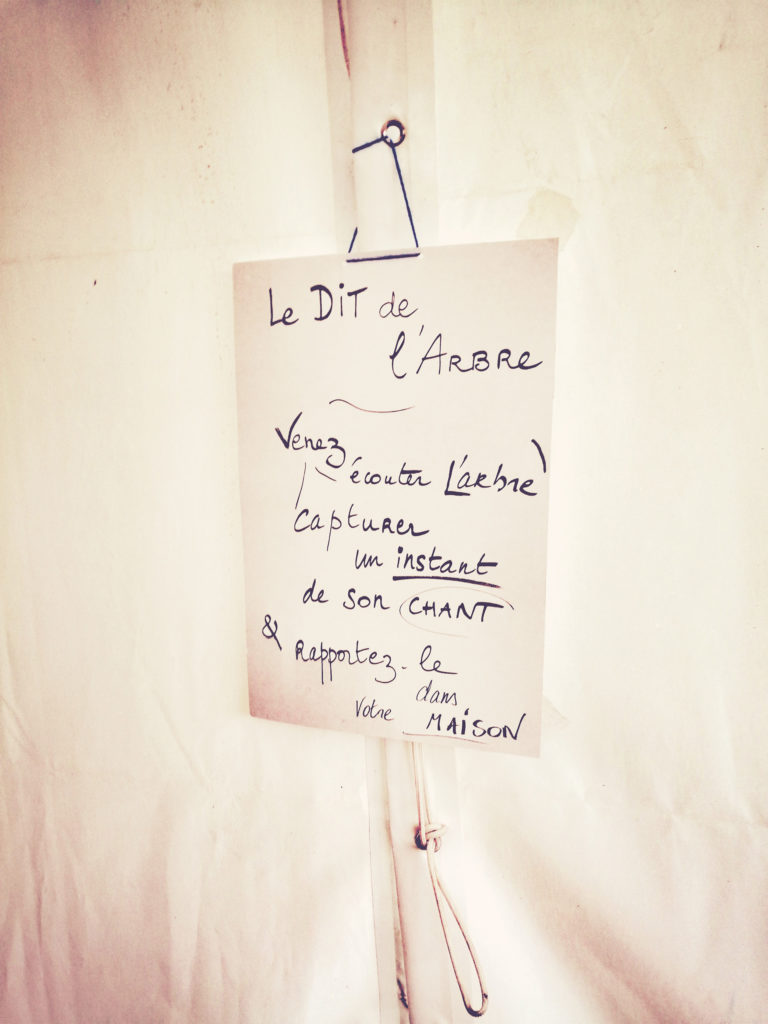 Le DiT de
l'ARBRe
Venez
écouter L'arbre
Capturer
un instant
de son CHANT
& Rapportez-le
dans
Votre MAiSON